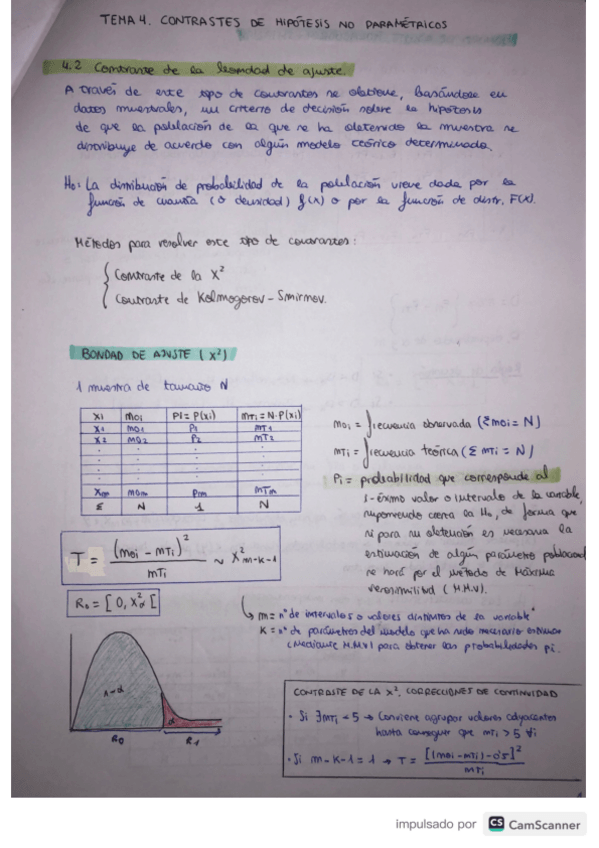 TEMA 4. CONTRASTES DE HIPÓTESIS NO PARAMÉTRICOS
4.2 Contraste de la bondad de ajuste.
A través de este tipo de contrastes se obtiene, basándose en
datos muestrales, un criterio de decisión sobre la hipótesis
de que la población de la que se ha obtenido la muestra se
distribuye de acuerdo con algún modelo teórico determinado.
H0: La distribución de probabilidad de la población viene dada por la
función de cuantía (o densidad) f(x) o por la función de distr. F(x).
Métodos para resolver este tipo de contrastes:
Contraste de la X²
Contraste de Kolmogorov-Smirnov.
BONDAD DE AJUSTE (X²)
1 muestra de tamaño N
xi moi Pi = P(xi) mTi = N·P(xi)
x1 mo1 P1 mT1
x2 mo2 P2 mT2
xm mom Pm mTm
Σ N 1 N
moi = frecuencia observada (Σmoi = N)
mTi = frecuencia teórica (Σ mTi = N)
Pi = probabilidad que corresponde al
i-éximo valor o intervalo de la variable,
suponiendo cierta la H0, de forma que
si para su obtención es necesaria la
estimación de algún parámetro poblacional
se hará por el método de Máxima
verosimilitud (M.M.V).
T = (moi - mTi)² / mTi ~ X² m-k-1
R0 = [0, X²α [
↳ m = nº de intervalos o valores distintos de la variable
K = nº de parámetros del modelo que ha sido necesario estimar
(Mediante M.M.V) para obtener las probabilidades pi.
1-α α
R0 R1
CONTRASTE DE LA X². CORRECCIONES DE CONTINUIDAD
· Si ∃mTi < 5 → Conviene agrupar valores adyacentes
hasta conseguir que mTi > 5 ∀i
· Si m-k-1 = 1 → T = [|moi - mTi| - 0'5]² / mTi
impulsado por CS CamScanner